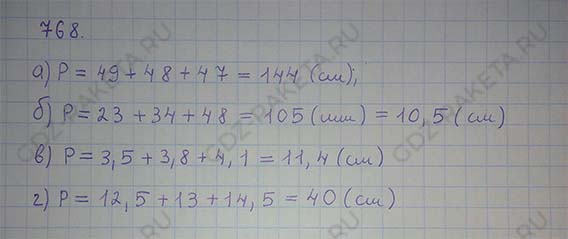 768.
а) P = 49 + 48 + 47 = 144 (см);
б) P = 23 + 34 + 48 = 105 (мм) = 10,5 (см)
в) P = 3,5 + 3,8 + 4,1 = 11,4 (см)
г) P = 12,5 + 13 + 14,5 = 40 (см)
GDZ-RAKETA.RU